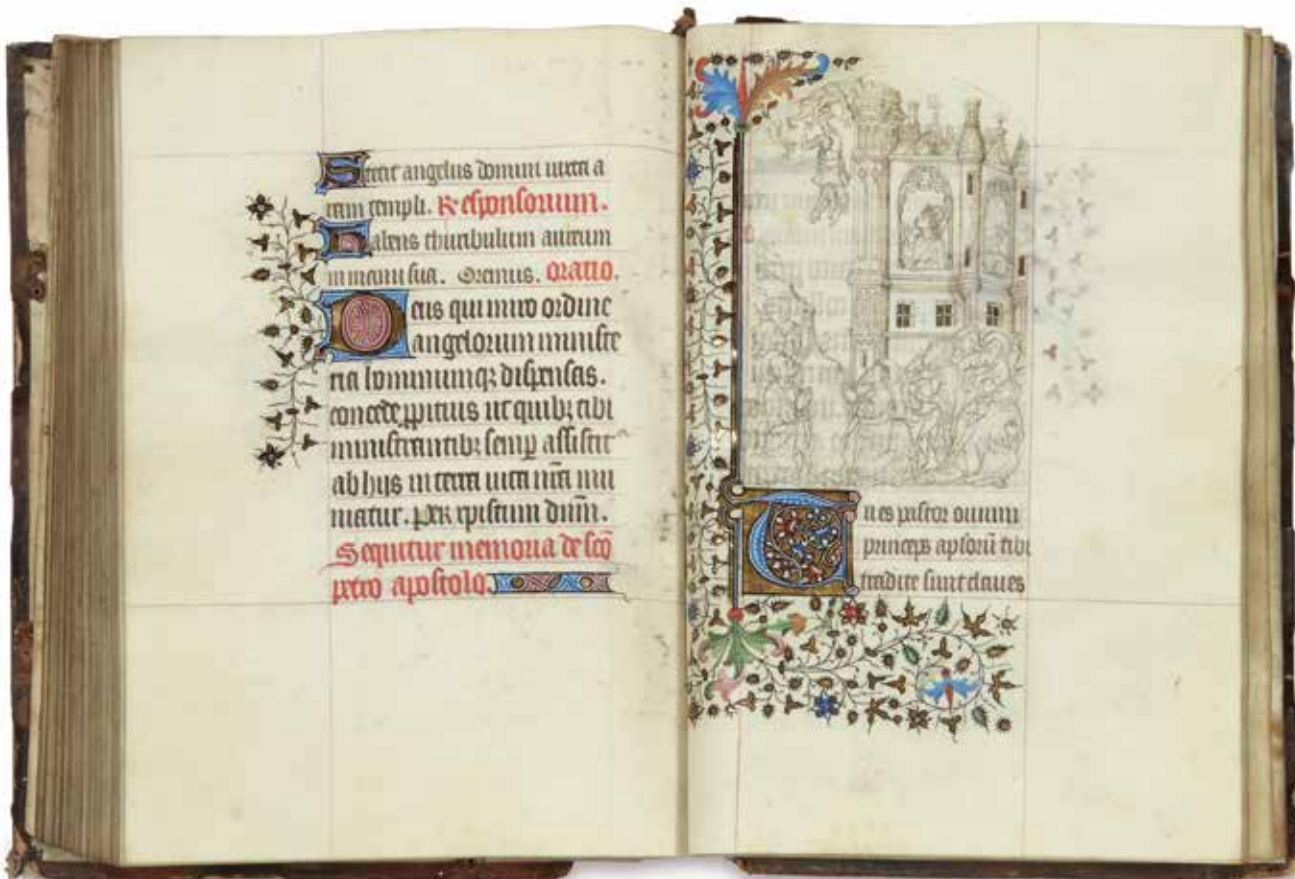 Stetit angelus domini iuxta a
ram templi. Responsorium.
Habens thuribulum aureum
in manu sua. Oremus. Oratio.
Deus qui miro ordine
angelorum ministe
ria hominumq; dispensas.
concede ppitius ut quibz tibi
ministrantibz semp assistit᷑
ab hijs in terra uita nr̄a mu
niatur. Per xpistum dnm̄.
Sequitur memoria de sc̄o
petro apostolo.
Tu es pastor ouium
princeps apl̄orū tibi
tradite sunt claues